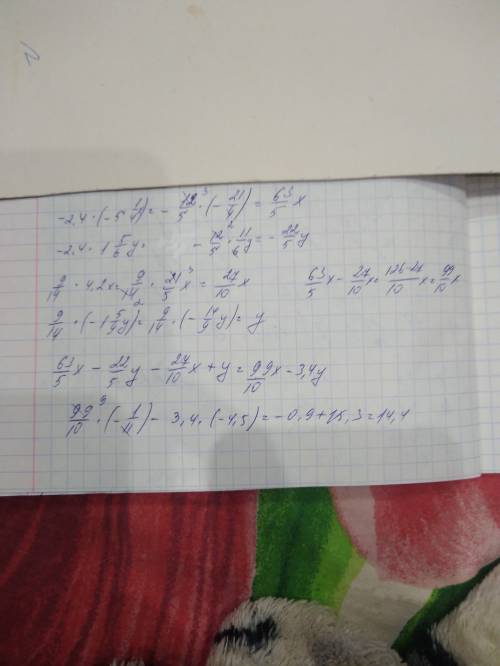 -2,4·(-5 1/4)= -12/5·(-21/4)= 63/5 x
-2,4·1 5/6 y= -12/5·11/6 y= -22/5 y
9/14·4,2x= 9/14·21/5 x= 27/10 x 63/5 x- 27/10 x= 126-27/10 x= 99/10 x
9/14·(-1 5/9 y)= 9/14·(-14/9 y)= y
63/5 x - 22/5 y - 27/10 x + y = 99/10 x - 3,4y
99/10·(-1/11) - 3,4·(-4,5) = -0,9+15,3=14,4